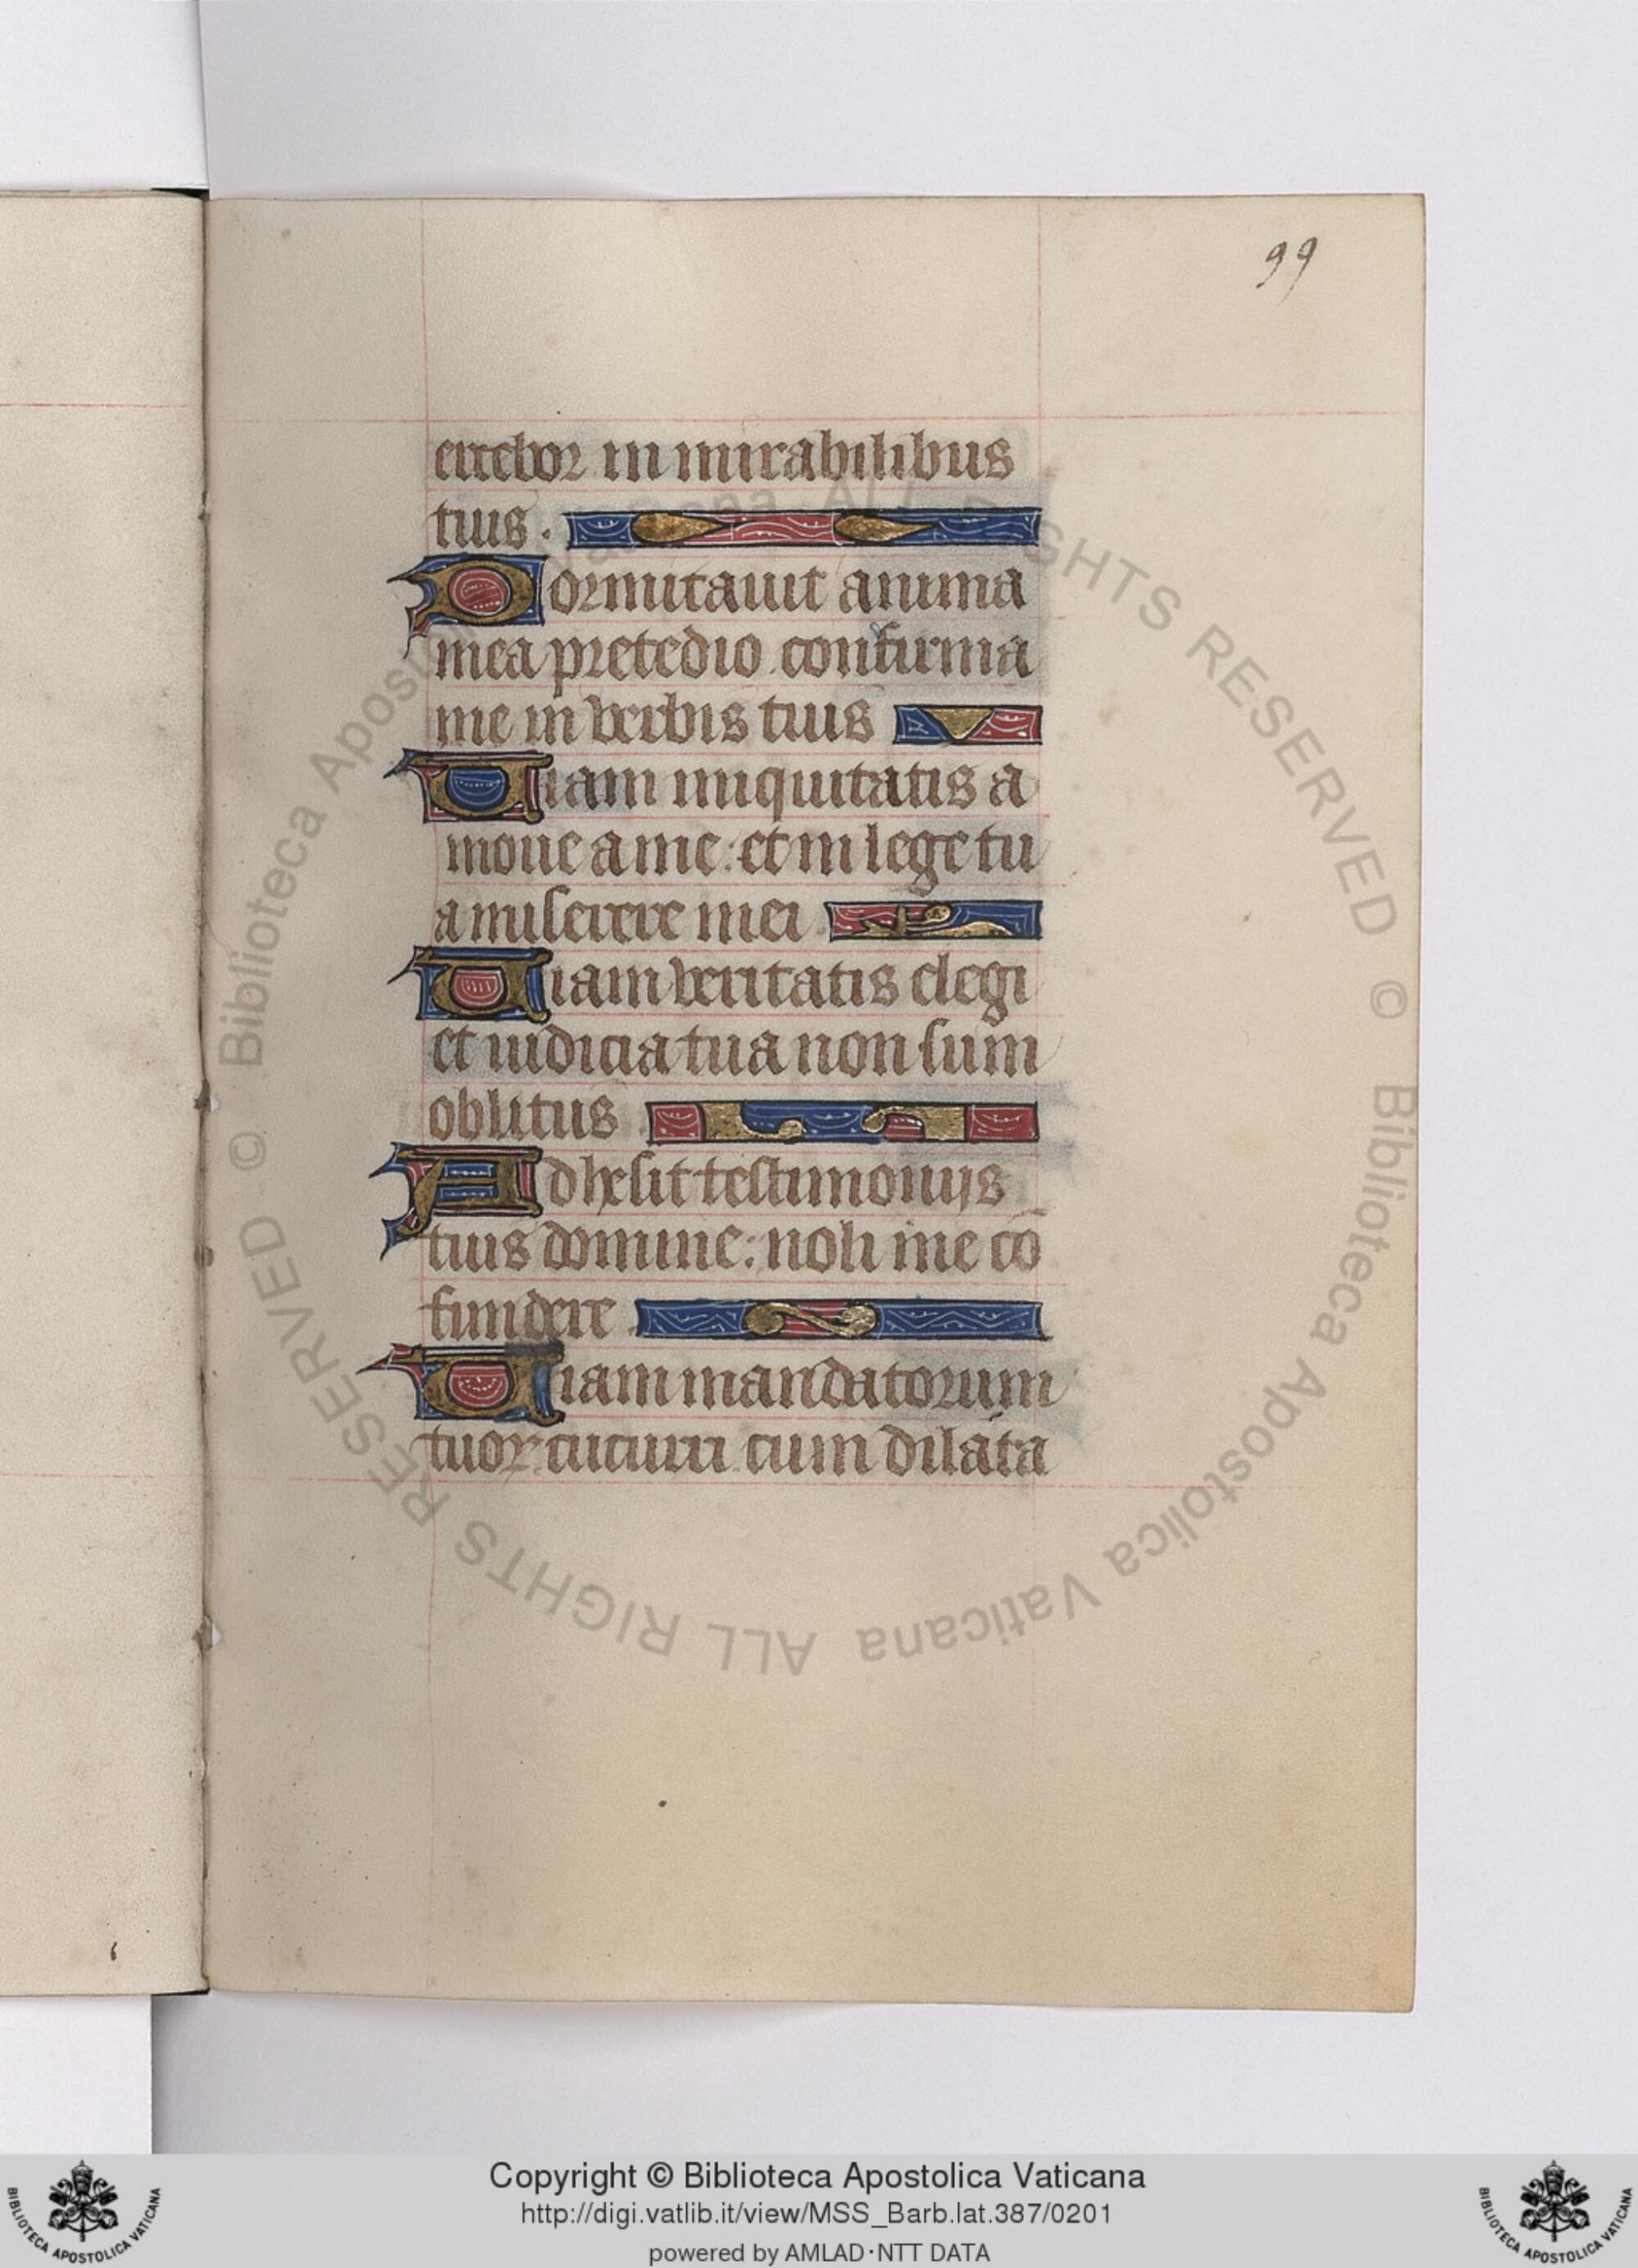 99
ercebor in mirabilibus
tuis.
Dormitauit anima
mea pretedio confirma
me in verbis tuis
Uiam iniquitatis a
moue a me: et in lege tu
a miserere mei.
Uiam veritatis elegi
et iudicia tua non sum
oblitus.
Adhesit testimonijs
tuis domine: noli me cō
fundere.
Uiam mandatorum
tuoꝝ cucurri cum dilata
© Biblioteca Apostolica Vaticana ALL RIGHTS RESERVED © Biblioteca Apostolica Vaticana ALL RIGHTS RESERVED
Copyright © Biblioteca Apostolica Vaticana
http://digi.vatlib.it/view/MSS_Barb.lat.387/0201
powered by AMLAD·NTT DATA
BIBLIOTECA APOSTOLICA VATICANA
BIBLIOTECA APOSTOLICA VATICANA